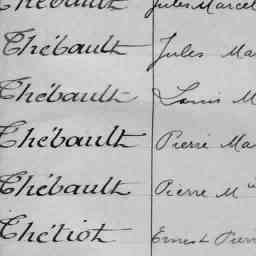 Thébault Jules Marcel
Thébault Jules Ma
Thébault Louis M
Thébault Pierre Ma
Thébault Pierre M
Thétiot Ernest Pierr